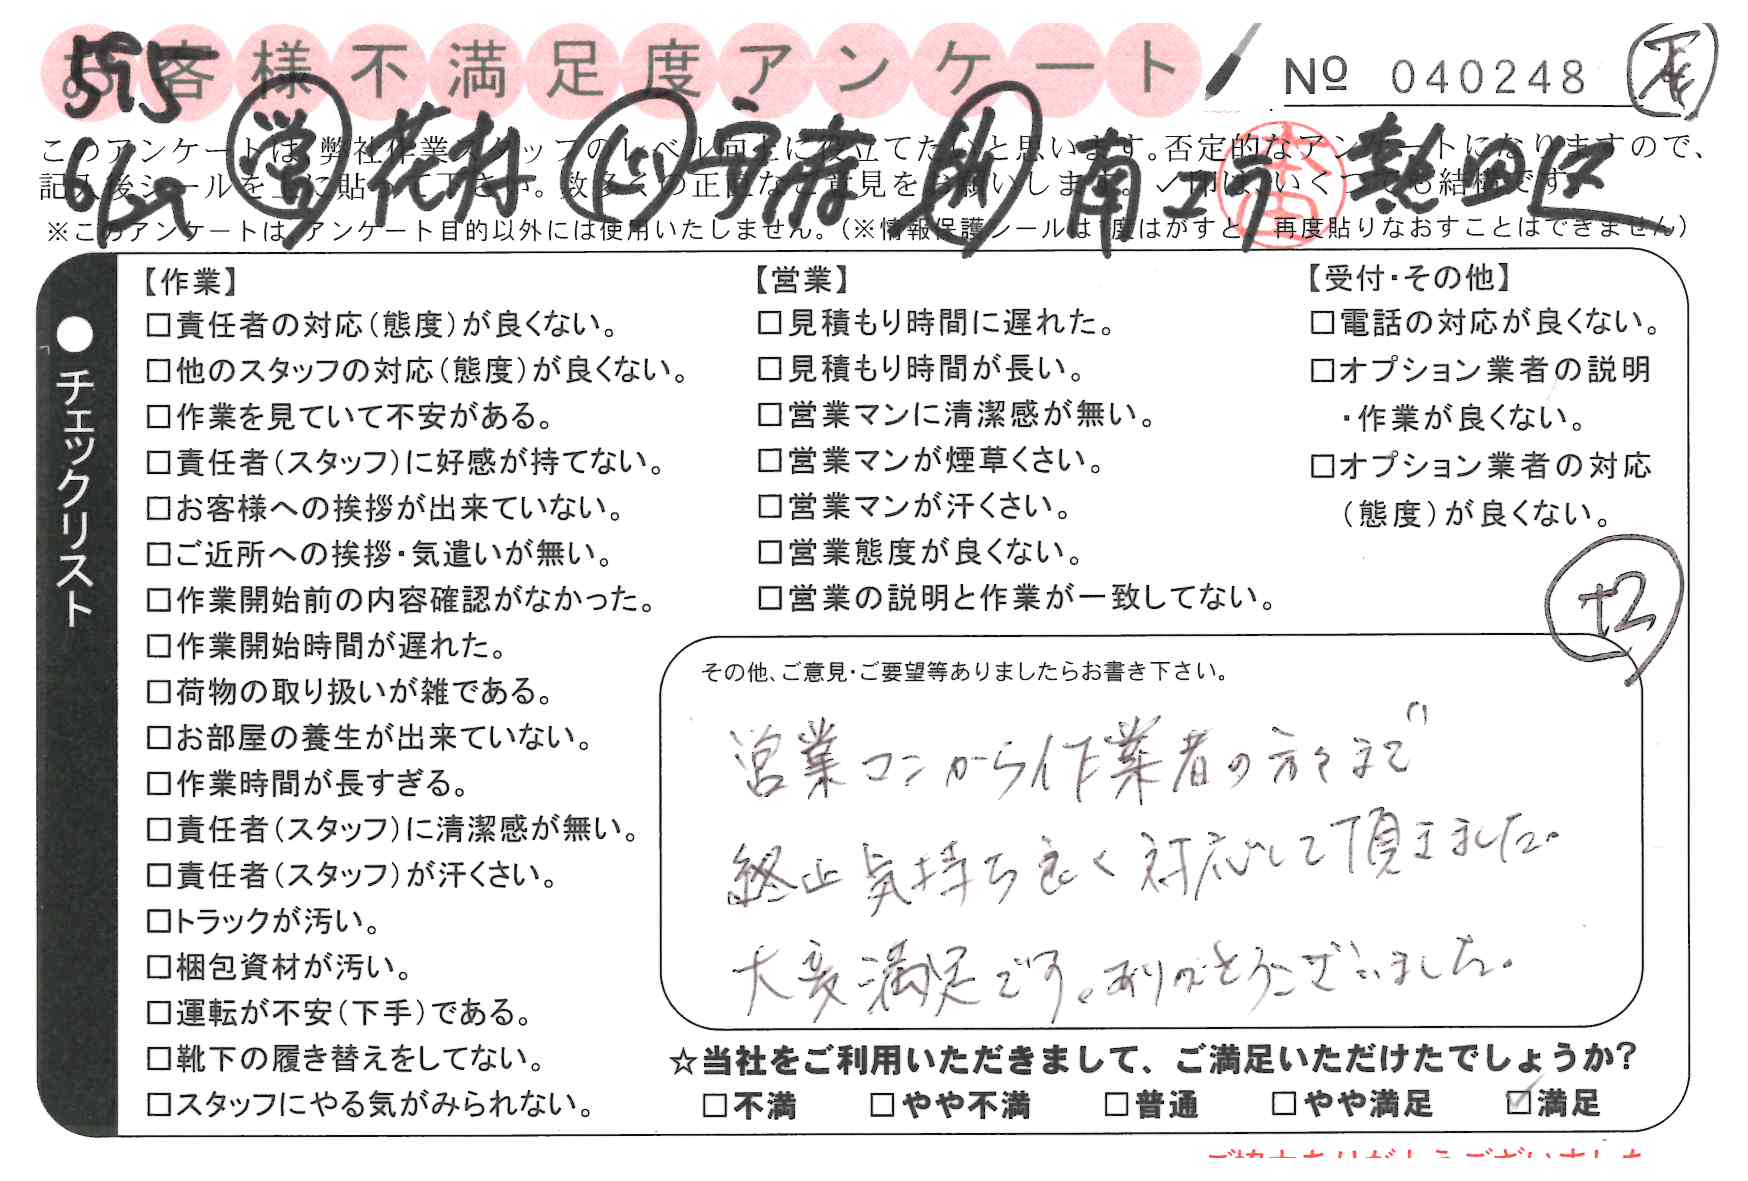 お客様不満足度アンケート
Nº 040248
このアンケートは、弊社作業スタッフのレベル向上に役立てたいと思います。否定的なアンケートになりますので、
記入後シールを上に貼って下さい。数多くの正直なご意見をお願いします。✓印は、いくつでも結構です。
※このアンケートは、アンケート目的以外には使用いたしません。(※情報保護シールは1度はがすと、再度貼りなおすことはできません)
営 花村 南 熱田区
●チェックリスト
【作業】
□責任者の対応(態度)が良くない。
□他のスタッフの対応(態度)が良くない。
□作業を見ていて不安がある。
□責任者(スタッフ)に好感が持てない。
□お客様への挨拶が出来ていない。
□ご近所への挨拶・気遣いが無い。
□作業開始前の内容確認がなかった。
□作業開始時間が遅れた。
□荷物の取り扱いが雑である。
□お部屋の養生が出来ていない。
□作業時間が長すぎる。
□責任者(スタッフ)に清潔感が無い。
□責任者(スタッフ)が汗くさい。
□トラックが汚い。
□梱包資材が汚い。
□運転が不安(下手)である。
□靴下の履き替えをしてない。
□スタッフにやる気がみられない。
【営業】
□見積もり時間に遅れた。
□見積もり時間が長い。
□営業マンに清潔感が無い。
□営業マンが煙草くさい。
□営業マンが汗くさい。
□営業態度が良くない。
□営業の説明と作業が一致してない。
【受付・その他】
□電話の対応が良くない。
□オプション業者の説明
・作業が良くない。
□オプション業者の対応
(態度)が良くない。
+2
その他、ご意見・ご要望等ありましたらお書き下さい。
営業マンから作業者の方々まで
終止気持ち良く対応して頂きました。
大変満足です。ありがとうございました。
☆当社をご利用いただきまして、ご満足いただけたでしょうか?
□不満 □やや不満 □普通 □やや満足 ☑満足
ご協力ありがとうございました